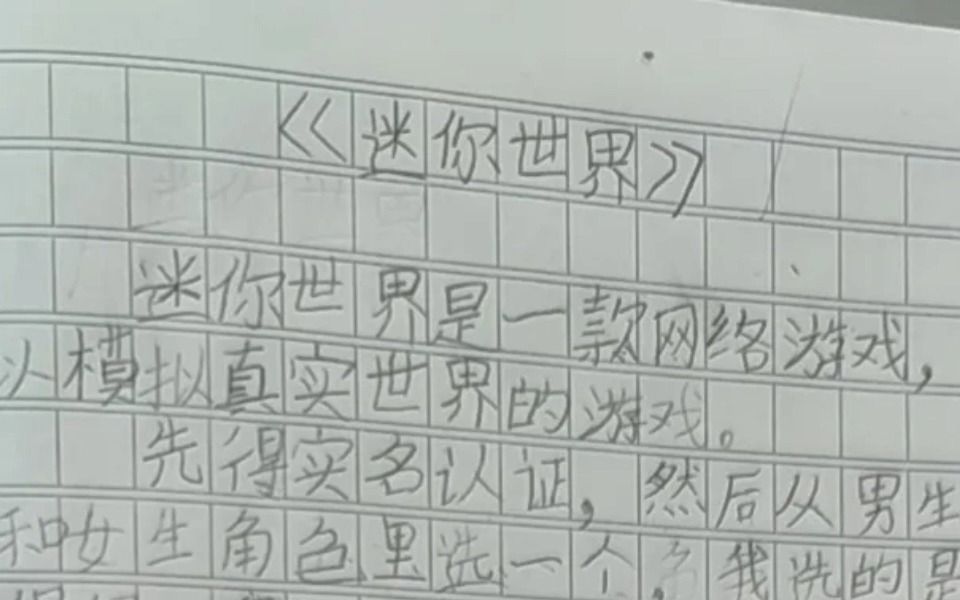 《迷你世界》
迷你世界是一款网络游戏，
以模拟真实世界的游戏。
先得实名认证，然后从男生
和女生角色里选一个，我选的是